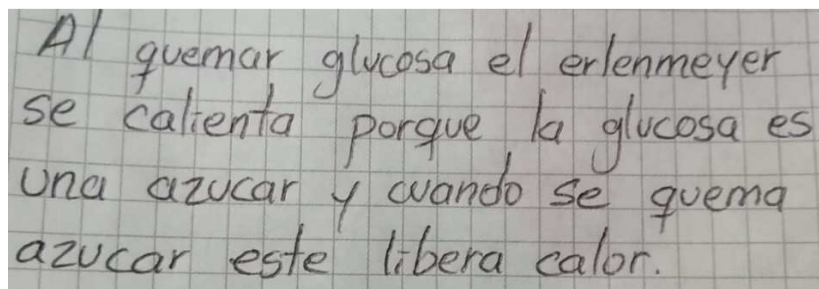 Al quemar glucosa el erlenmeyer
se calienta porque la glucosa es
una azucar y cuando se quema
azucar este libera calor.